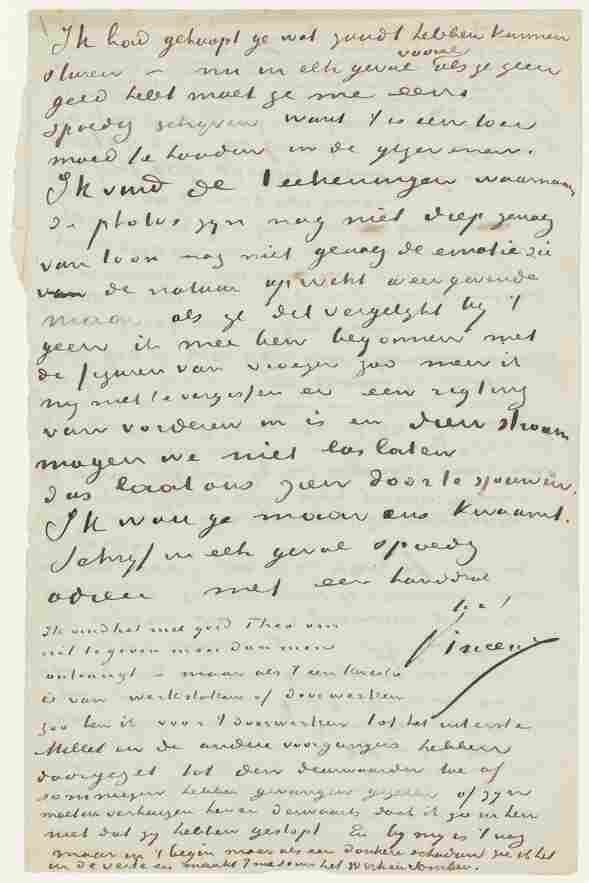 Ik had gehoopt ge wat zoudt hebben kunnen
sturen – nu in elk geval vooral als ge geen
geld hebt moet ge me eens
spoedig schrijven want 't is een toer
moed te houden in de gegevenen.
Ik vind de teekeningen waarnaar
de photos zijn nog niet diep genoeg
van toon nog niet genoeg de emotie die
van de natuur opwekt weergevende
maar als ge dit vergelijkt bij 't
geen ik mee ben begonnen met
de figuren van vroeger zoo meen ik
mij niet te vergissen er een rigting
van vorderen in is en dien stroom
mogen we niet loslaten
dus laat ons zien door te sjouwen.
Ik wou ge maar eens kwaamt.
Schrijf in elk geval spoedig
adieu met een handdruk
t.à t.
Vincent
Ik vind het niet goed Theo om
uit te geven meer dan men
ontvangt – maar als 't een kwestie
is van werkstaken of doorwerken
zoo ben ik voor 't doorwerken tot het uiterste
Millet en de andere voorgangers hebben
doorgezet tot den deurwaarder toe of
sommigen hebben gevangen gezeten of zijn
moeten verhuizen her en derwaarts doch ik zie in hen
niet dat zij hebben gestopt En bij mij is 't nog
maar in 't begin maar als een donkere schaduw zie ik het
in de verte en maakt me soms het werken somber.